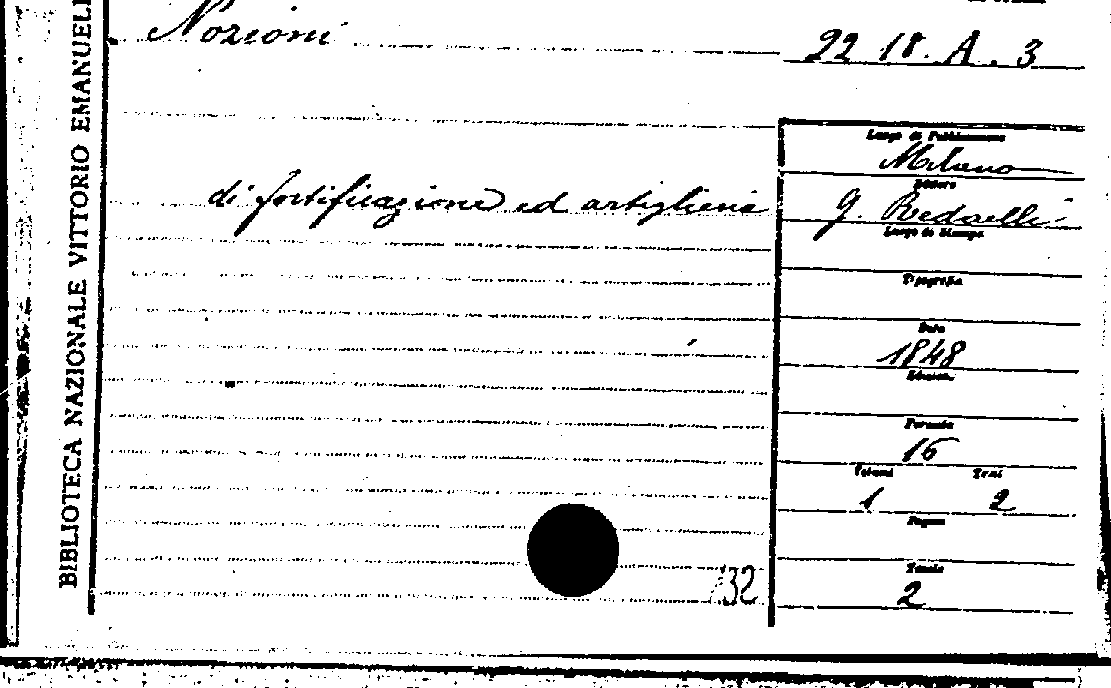 BIBLIOTECA NAZIONALE VITTORIO EMANUELE
Nozioni
22 18. A. 3
di fortificazione ed artiglieria
Luogo di Pubblicazione
Milano
Editore
G. Redaelli
Luogo di Stampa
Tipografia
Data
1848
Edizione
Formato
16
Volumi Tomi
1 2
Pagine
Tavole
2
132